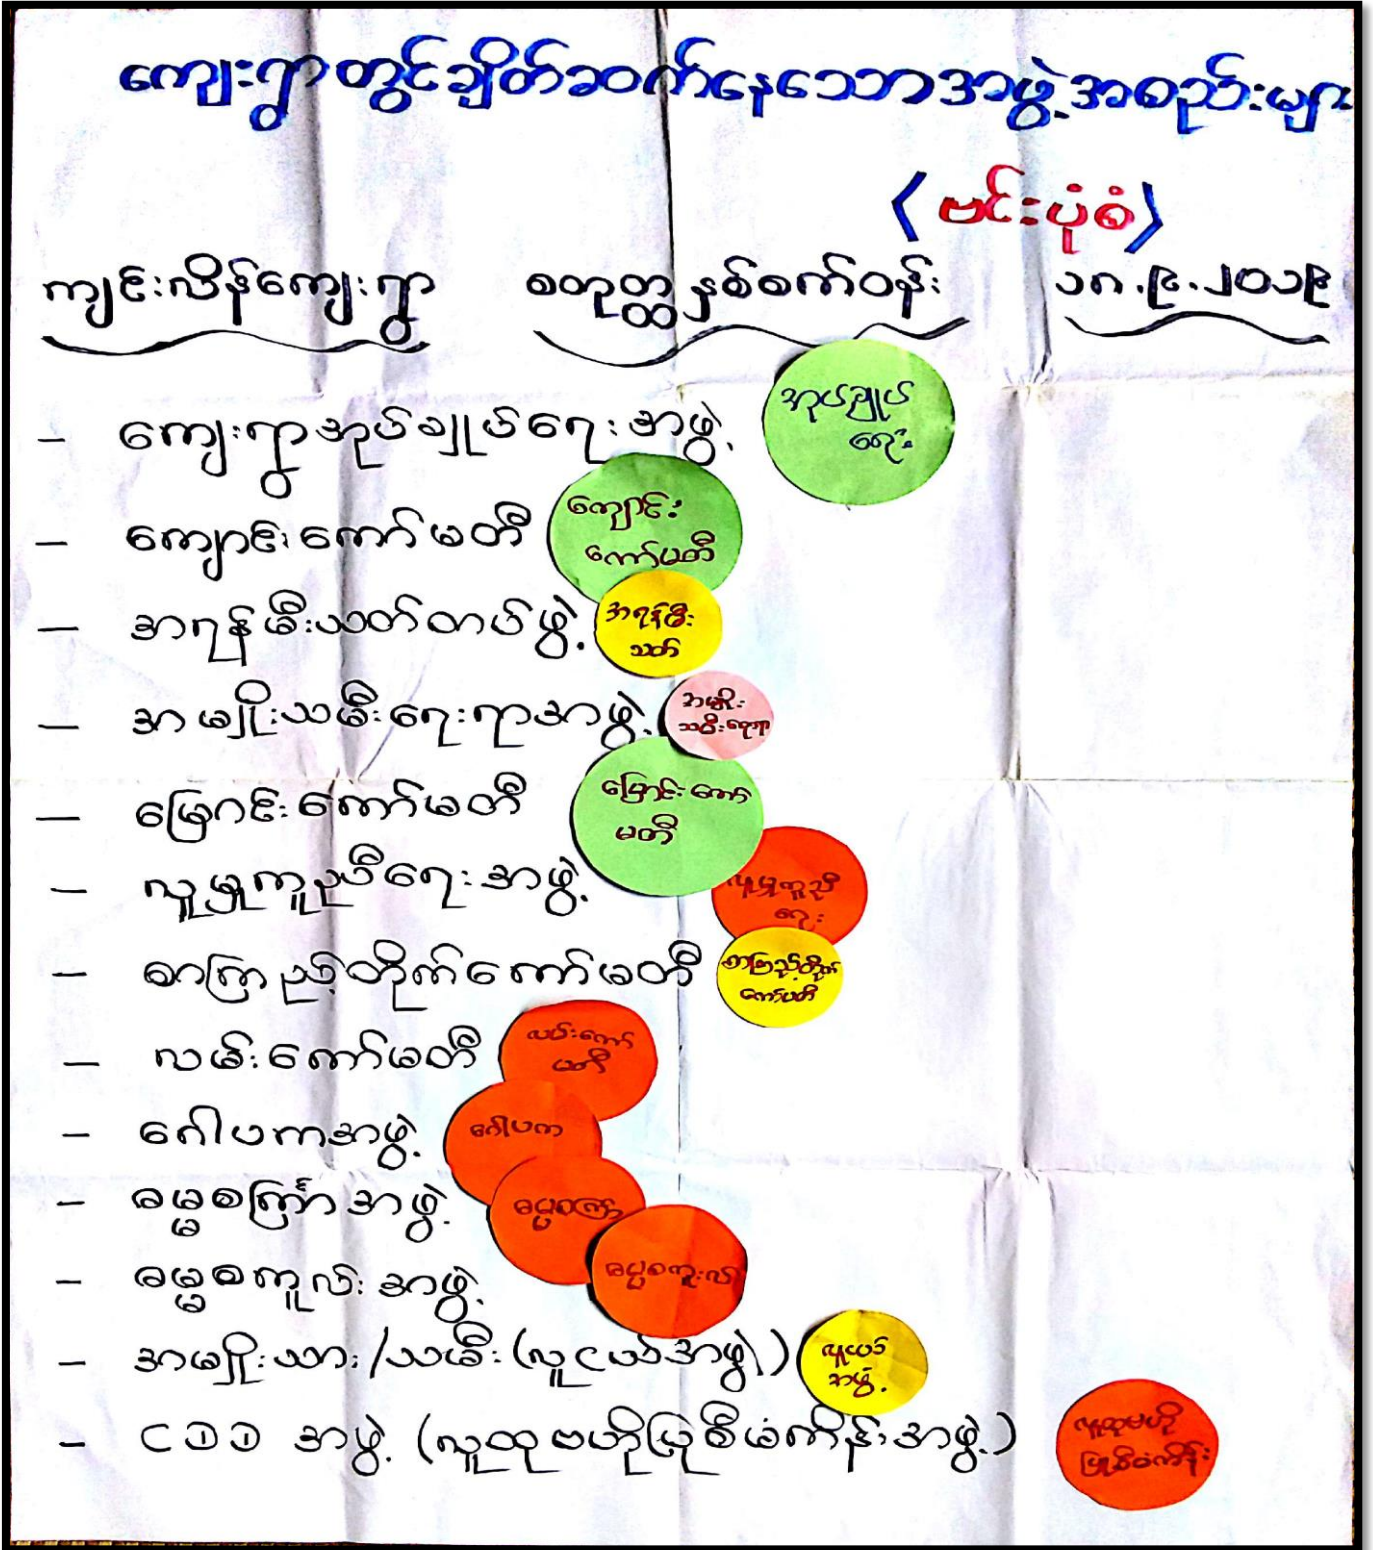 ကျေးရွာတွင်ချိတ်ဆက်နေသောအဖွဲ့အစည်းများ
〈 ဗင်းပုံစံ 〉
ကျင်းလိန်ကျေးရွာ စတုတ္ထနှစ်စက်ဝန်း ၁၈.၉.၂၀၁၉
– ကျေးရွာအုပ်ချုပ်ရေးအဖွဲ့ အုပ်ချုပ်
ရေး
– ကျောင်းကော်မတီ ကျောင်း
ကော်မတီ
– အရန်မီးသတ်တပ်ဖွဲ့ အရန်မီး
သတ်
– အမျိုးသမီးရေးရာအဖွဲ့ အမျိုး
သမီးရေးရာ
– မြောင်းကော်မတီ မြောင်းကော်
မတီ
– လူမှုကူညီရေးအဖွဲ့ လူမှုကူညီ
ရေး
– စာကြည့်တိုက်ကော်မတီ စာကြည့်တိုက်
ကော်မတီ
– လမ်းကော်မတီ လမ်းကော်
မတီ
– ဂေါပကအဖွဲ့ ဂေါပက
– ဓမ္မစကြာအဖွဲ့ ဓမ္မစကြာ
– ဓမ္မစကူလ်းအဖွဲ့ ဓမ္မစကူးလ်
– အမျိုးသား/သမီး (လူငယ်အဖွဲ့) လူငယ်
အဖွဲ့
– CDD အဖွဲ့ (လူထုဗဟိုပြုစီမံကိန်းအဖွဲ့) လူထုဗဟို
ပြုစီမံကိန်း